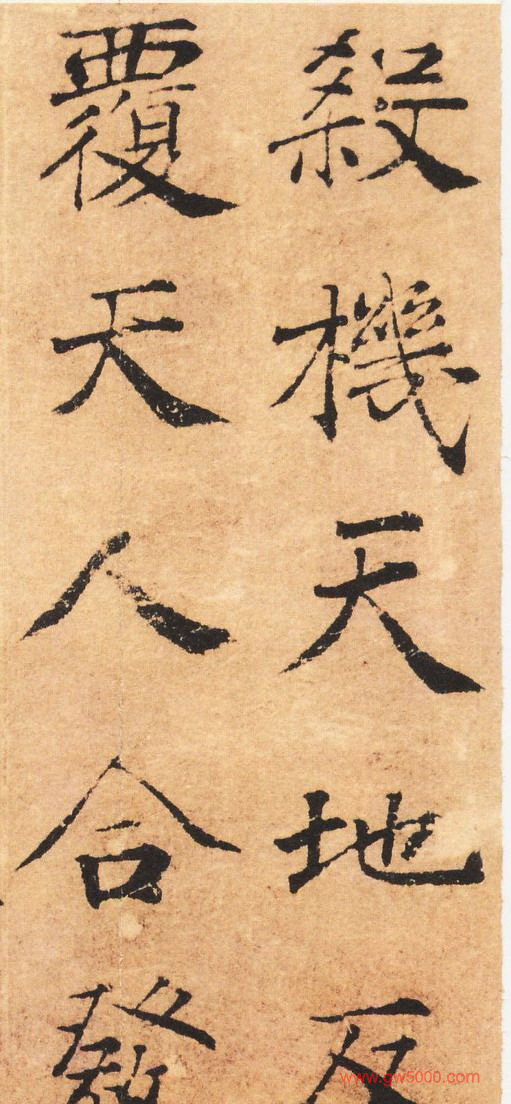 殺機天地反
覆天人合發
www.gw5000.com